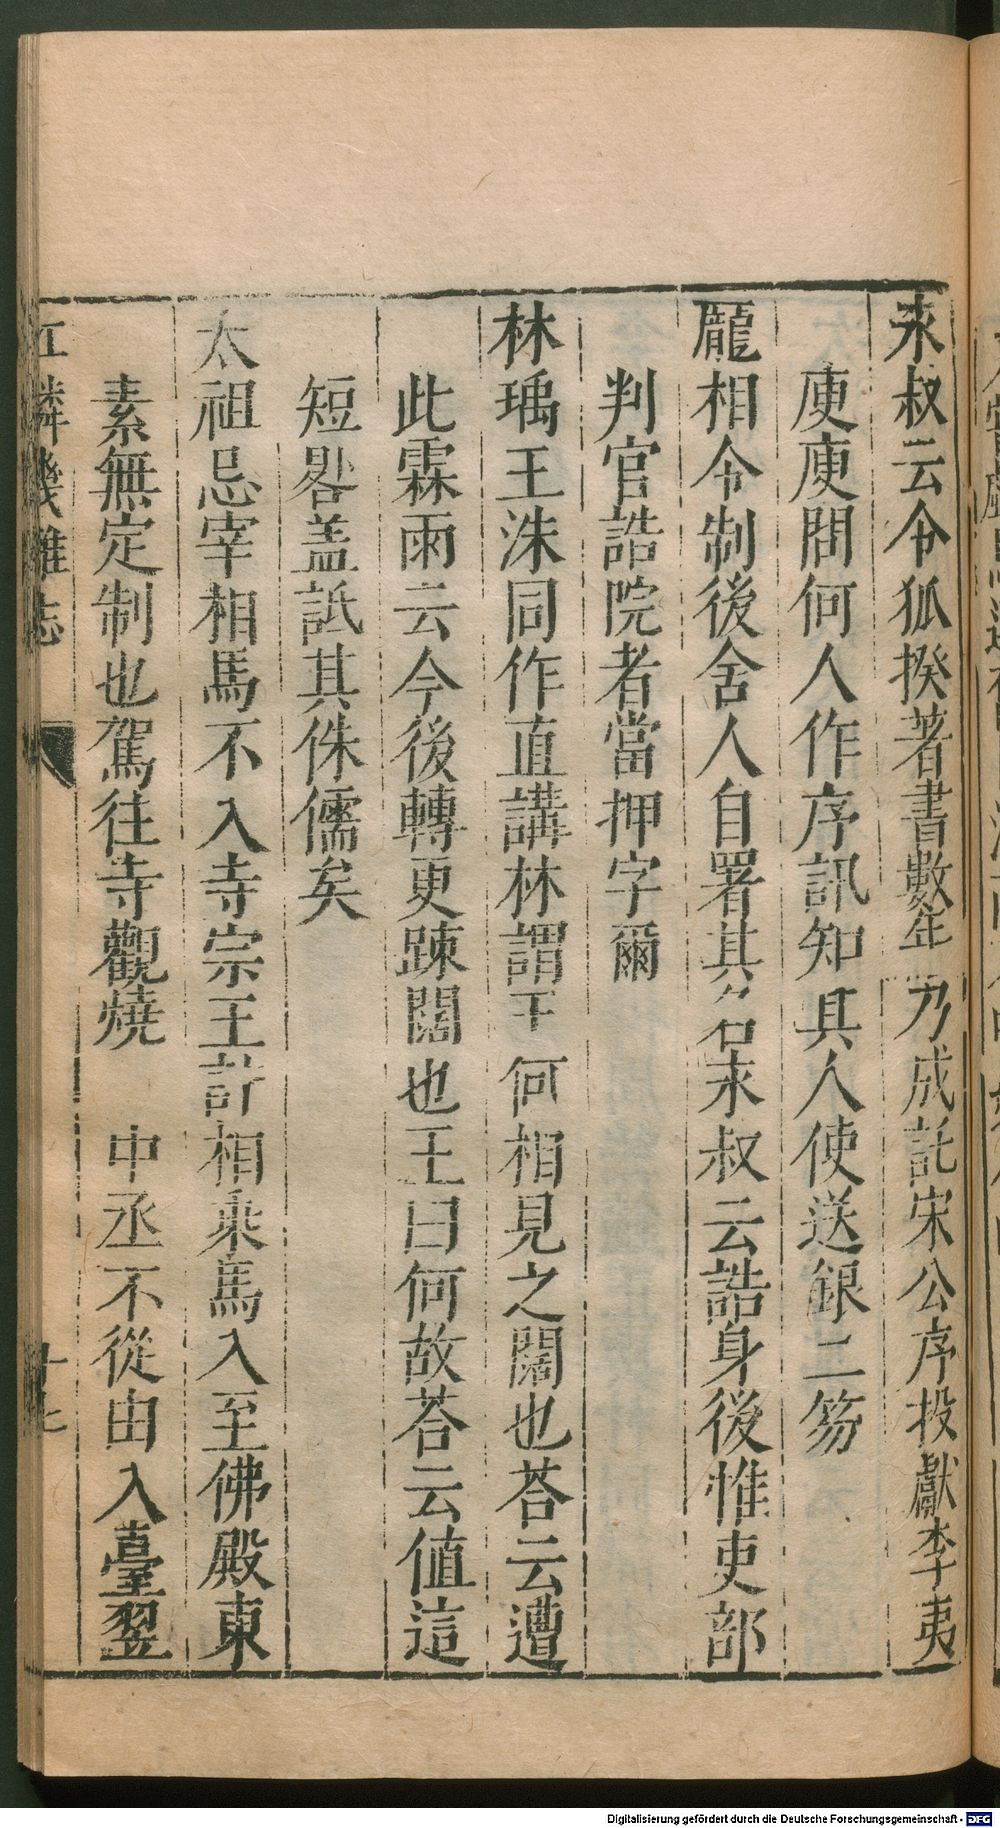 永叔云令狐揆著書數年乃成託宋公序投獻李夷
庾庾問何人作序訊知其人使送銀二笏
龎相令制後舍人自署其名永叔云誥身後惟吏部
判官誥院者當押字爾
林瑀王洙同作直講林謂王何相見之闊也荅云遭
此霖雨云今後轉更踈闊也王曰何故荅云値這
短晷盖詆其侏儒矣
太祖忌宰相馬不入寺宗王計相乘馬入至佛殿東
素無定制也駕往寺觀燒 中丞不從由入臺翌
江鄰幾雜志 十七
Digitalisierung gefördert durch die Deutsche Forschungsgemeinschaft - DFG